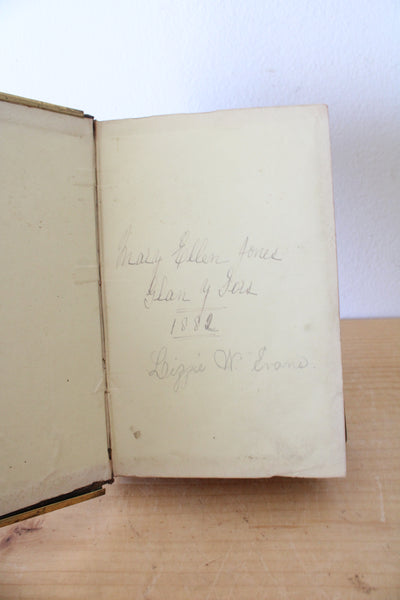 Mary Ellen Jones
Glan y Fors
1882
Lizzie W. Evans.